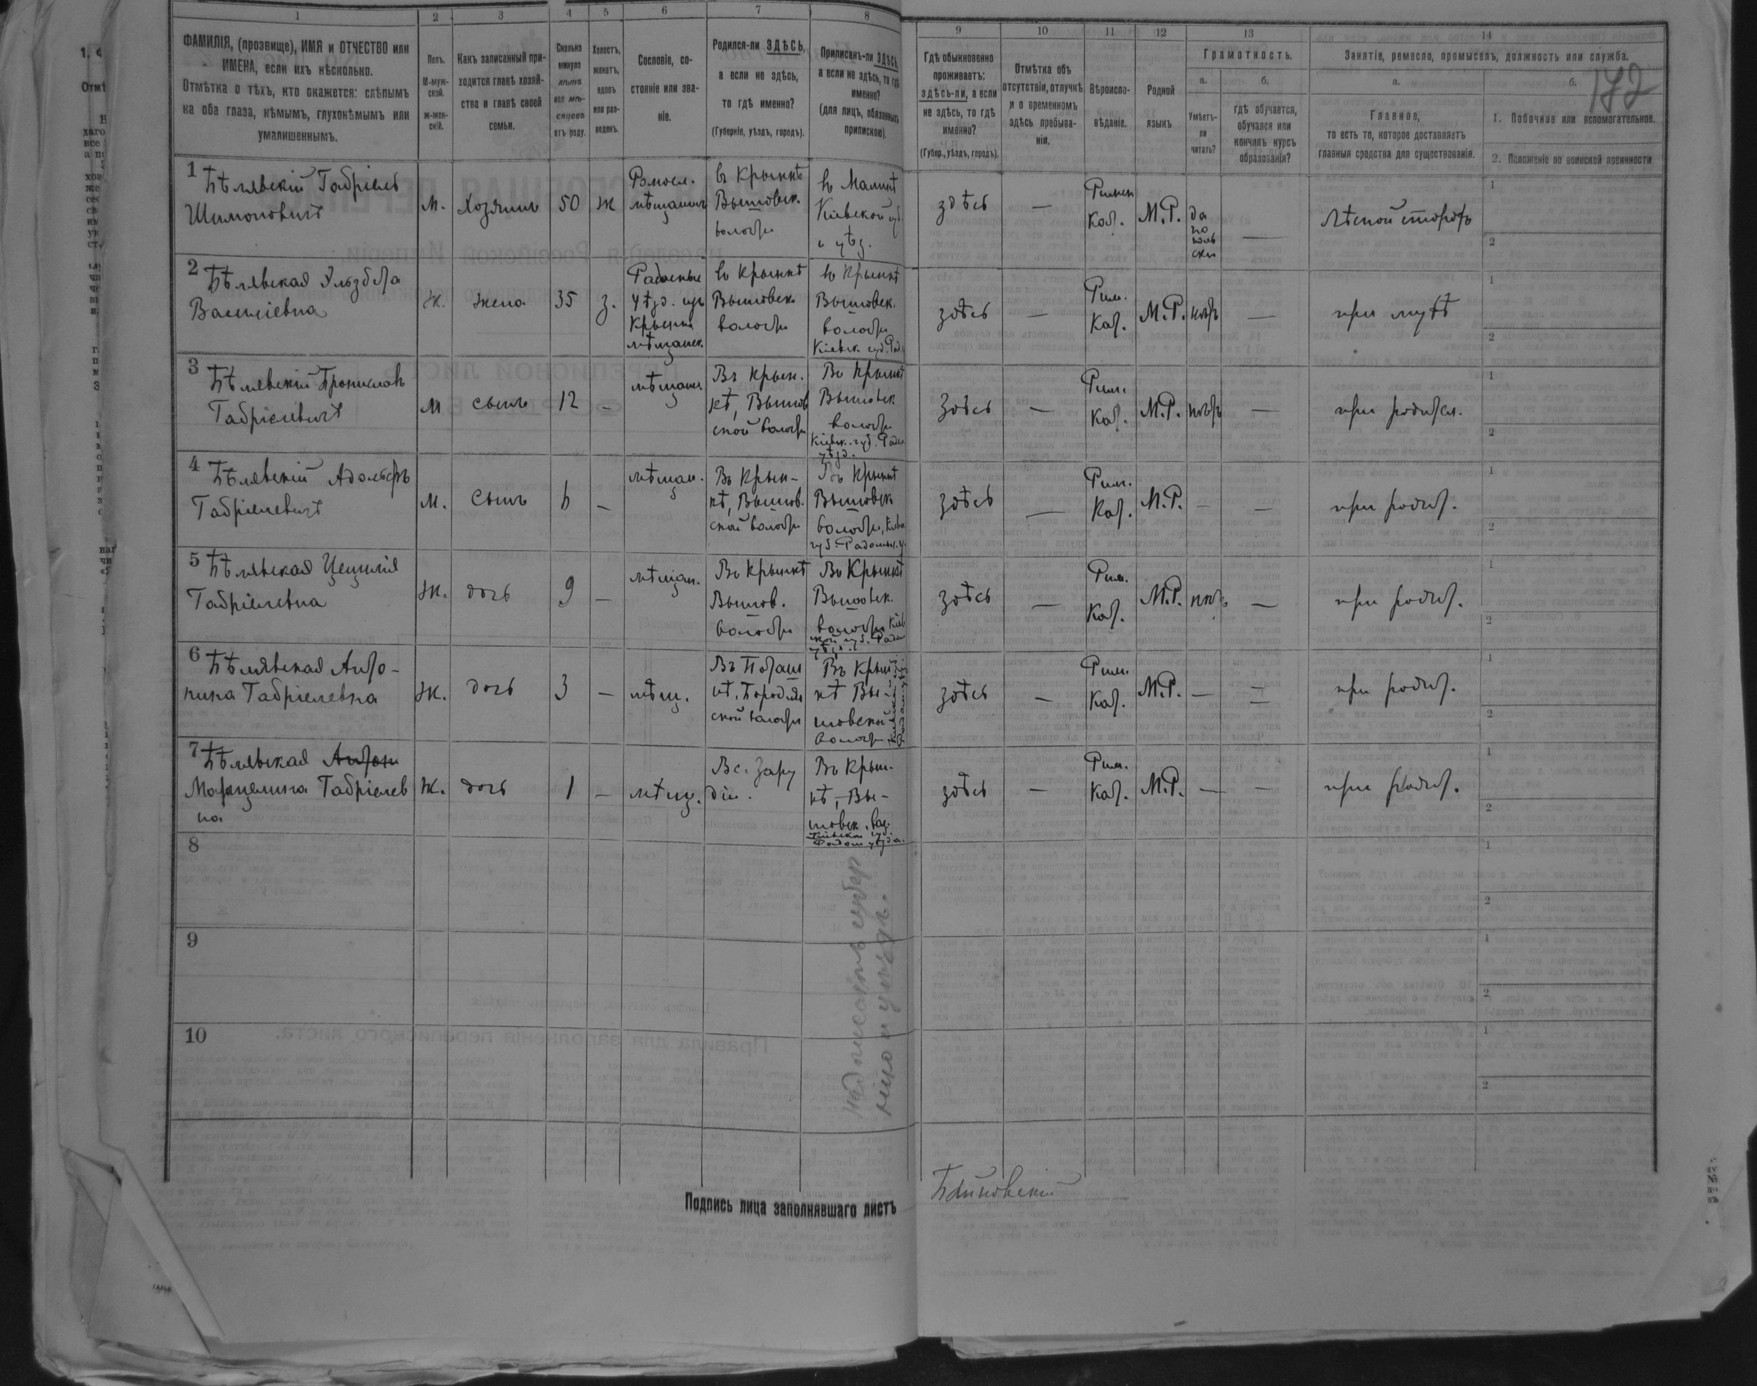 1 2 3 4 5 6 7 8 9 10 11 12 13 14
172
ФАМИЛІЯ, (прозвище), ИМЯ и ОТЧЕСТВО или
ИМЕНА, если ихъ нѣсколько.
Отмѣтка о тѣхъ, кто окажется: слѣпымъ
на оба глаза, нѣмымъ, глухонѣмымъ или
умалишеннымъ.
Полъ.
М-муж-
ской.
ж-жен-
скій.
Какъ записанный при-
ходится главѣ хозяй-
ства и главѣ своей
семьи.
Сколько
минуло
лѣтъ
или мѣ-
сяцевъ
отъ роду.
Холостъ,
женатъ,
вдовъ
или раз-
веденъ.
Сословіе, со-
стояніе или зва-
ніе.
Родился-ли ЗДѢСЬ,
а если не здѣсь,
то гдѣ именно?
(Губернія, уѣздъ, городъ).
Приписанъ-ли ЗДѢСЬ,
а если не здѣсь, то гдѣ
именно?
(для лицъ, обязанныхъ
припискою).
Гдѣ обыкновенно
проживаетъ:
здѣсь-ли, а если
не здѣсь, то гдѣ
именно?
(Губер., уѣздъ, городъ).
Отмѣтка объ
отсутствіи, отлучкѣ
и о временномъ
здѣсь пребыва-
ніи.
Вѣроиспо-
вѣданіе.
Родной
языкъ
Грамотность.
а. б.
Умѣетъ-
ли
читать?
гдѣ обучается,
обучался или
кончилъ курсъ
образованія?
Занятіе, ремесло, промыселъ, должность или служба.
а. б.
Главное,
то есть то, которое доставляетъ
главныя средства для существованія.
1. Побочное или вспомогательное.
2. Положеніе по воинской повинности
1 Бѣлявскій Габріель
Шимоновичъ
М. Хозяинъ 50 ж
мѣщанинъ
въ Крынкѣ
Вышовск.
волости
въ Малинѣ
Кіевской губ.
и уѣз.
здѣсь —
Римск
Кат. М.Р. да
по
поль
ски
—
Лѣсной сторожъ
1
2
2 Бѣлявская Эльзбета
Васильевна
Ж. жена 35 з.
Радомысл
уѣзд. изъ
Крынки
мѣщанск.
въ Крынкѣ
Вышовск.
волости
въ Крынкѣ
Вышовск.
волости
Кіевск. губ. Рад.
здѣсь — Рим.
Кат. М.Р. нѣтъ —
при мужѣ
1
2
3 Бѣлявскій Брониславъ
Габріелевичъ
М сынъ 12 — мѣщан
Въ Крын-
кѣ, Вышов
ской волости
Въ Крынкѣ
Вышовск.
волости
Кіевск. губ. Радом
уѣзд.
здѣсь — Рим.
Кат. М.Р. нѣтъ —
при родител.
1
2
4 Бѣлявскій Адольфъ
Габріелевичъ
М. сынъ 6 — мѣщан.
Въ Крын-
кѣ, Вышов.
ской волости
Въ Крынкѣ
Вышовск
волости, Кіев
губ. Радомыс. у
здѣсь — Рим.
Кат. М.Р. — —
при родит.
1
2
5 Бѣлявская Цецилія
Габріелевна
Ж. дочь 9 — мѣщан.
Въ Крынкѣ
Вышов.
волости
Въ Крынкѣ
Вышовск.
волости Кіев
ской губ. Радом
уѣзд.
здѣсь — Рим.
Кат. М.Р. нѣтъ —
при родит.
1
2
6 Бѣлявская Анто-
нина Габріелевна
Ж. дочь 3 — мѣщ.
Въ Поташ
нѣ, Бородян
ской волости
Въ Крын
кѣ Вы-
шовской
волости
здѣсь — Рим.
Кат. М.Р. — —
при родит.
1
2
7 Бѣлявская Антон
Марцелина Габріелев
на
Ж. дочь 1 — мѣщ.
В с. Зару
діи.
Въ Крын-
кѣ, Вы-
шовск. вол.
Кіевской губ.
Радом уѣзда.
здѣсь — Рим.
Кат. М.Р. — —
при родит.
1
2
8
1
2
9
1
2
10
1
2
надписать губер
нію и уѣздъ.
Подпись лица заполнявшаго листъ